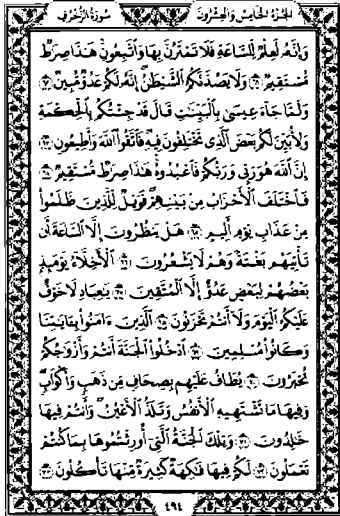 الجزء الخامس والعشرون
سورة الزخرف
وَإِنَّهُ لَعِلْمٌ لِّلسَّاعَةِ فَلَا تَمْتَرُنَّ بِهَا وَاتَّبِعُونِ هَٰذَا صِرَاطٌ
مُّسْتَقِيمٌ ۝٦١ وَلَا يَصُدَّنَّكُمُ الشَّيْطَانُ إِنَّهُ لَكُمْ عَدُوٌّ مُّبِينٌ ۝٦٢
وَلَمَّا جَاءَ عِيسَىٰ بِالْبَيِّنَاتِ قَالَ قَدْ جِئْتُكُم بِالْحِكْمَةِ
وَلِأُبَيِّنَ لَكُم بَعْضَ الَّذِي تَخْتَلِفُونَ فِيهِ فَاتَّقُوا اللَّهَ وَأَطِيعُونِ ۝٦٣
إِنَّ اللَّهَ هُوَ رَبِّي وَرَبُّكُمْ فَاعْبُدُوهُ هَٰذَا صِرَاطٌ مُّسْتَقِيمٌ ۝٦٤
فَاخْتَلَفَ الْأَحْزَابُ مِن بَيْنِهِمْ فَوَيْلٌ لِّلَّذِينَ ظَلَمُوا
مِنْ عَذَابِ يَوْمٍ أَلِيمٍ ۝٦٥ هَلْ يَنظُرُونَ إِلَّا السَّاعَةَ أَن
تَأْتِيَهُم بَغْتَةً وَهُمْ لَا يَشْعُرُونَ ۝٦٦ الْأَخِلَّاءُ يَوْمَئِذٍ
بَعْضُهُمْ لِبَعْضٍ عَدُوٌّ إِلَّا الْمُتَّقِينَ ۝٦٧ يَا عِبَادِ لَا خَوْفٌ
عَلَيْكُمُ الْيَوْمَ وَلَا أَنتُمْ تَحْزَنُونَ ۝٦٨ الَّذِينَ آمَنُوا بِآيَاتِنَا
وَكَانُوا مُسْلِمِينَ ۝٦٩ ادْخُلُوا الْجَنَّةَ أَنتُمْ وَأَزْوَاجُكُمْ
تُحْبَرُونَ ۝٧٠ يُطَافُ عَلَيْهِم بِصِحَافٍ مِّن ذَهَبٍ وَأَكْوَابٍ
وَفِيهَا مَا تَشْتَهِيهِ الْأَنفُسُ وَتَلَذُّ الْأَعْيُنُ وَأَنتُمْ فِيهَا
خَالِدُونَ ۝٧١ وَتِلْكَ الْجَنَّةُ الَّتِي أُورِثْتُمُوهَا بِمَا كُنتُمْ
تَعْمَلُونَ ۝٧٢ لَكُمْ فِيهَا فَاكِهَةٌ كَثِيرَةٌ مِّنْهَا تَأْكُلُونَ ۝٧٣
٤٩٤